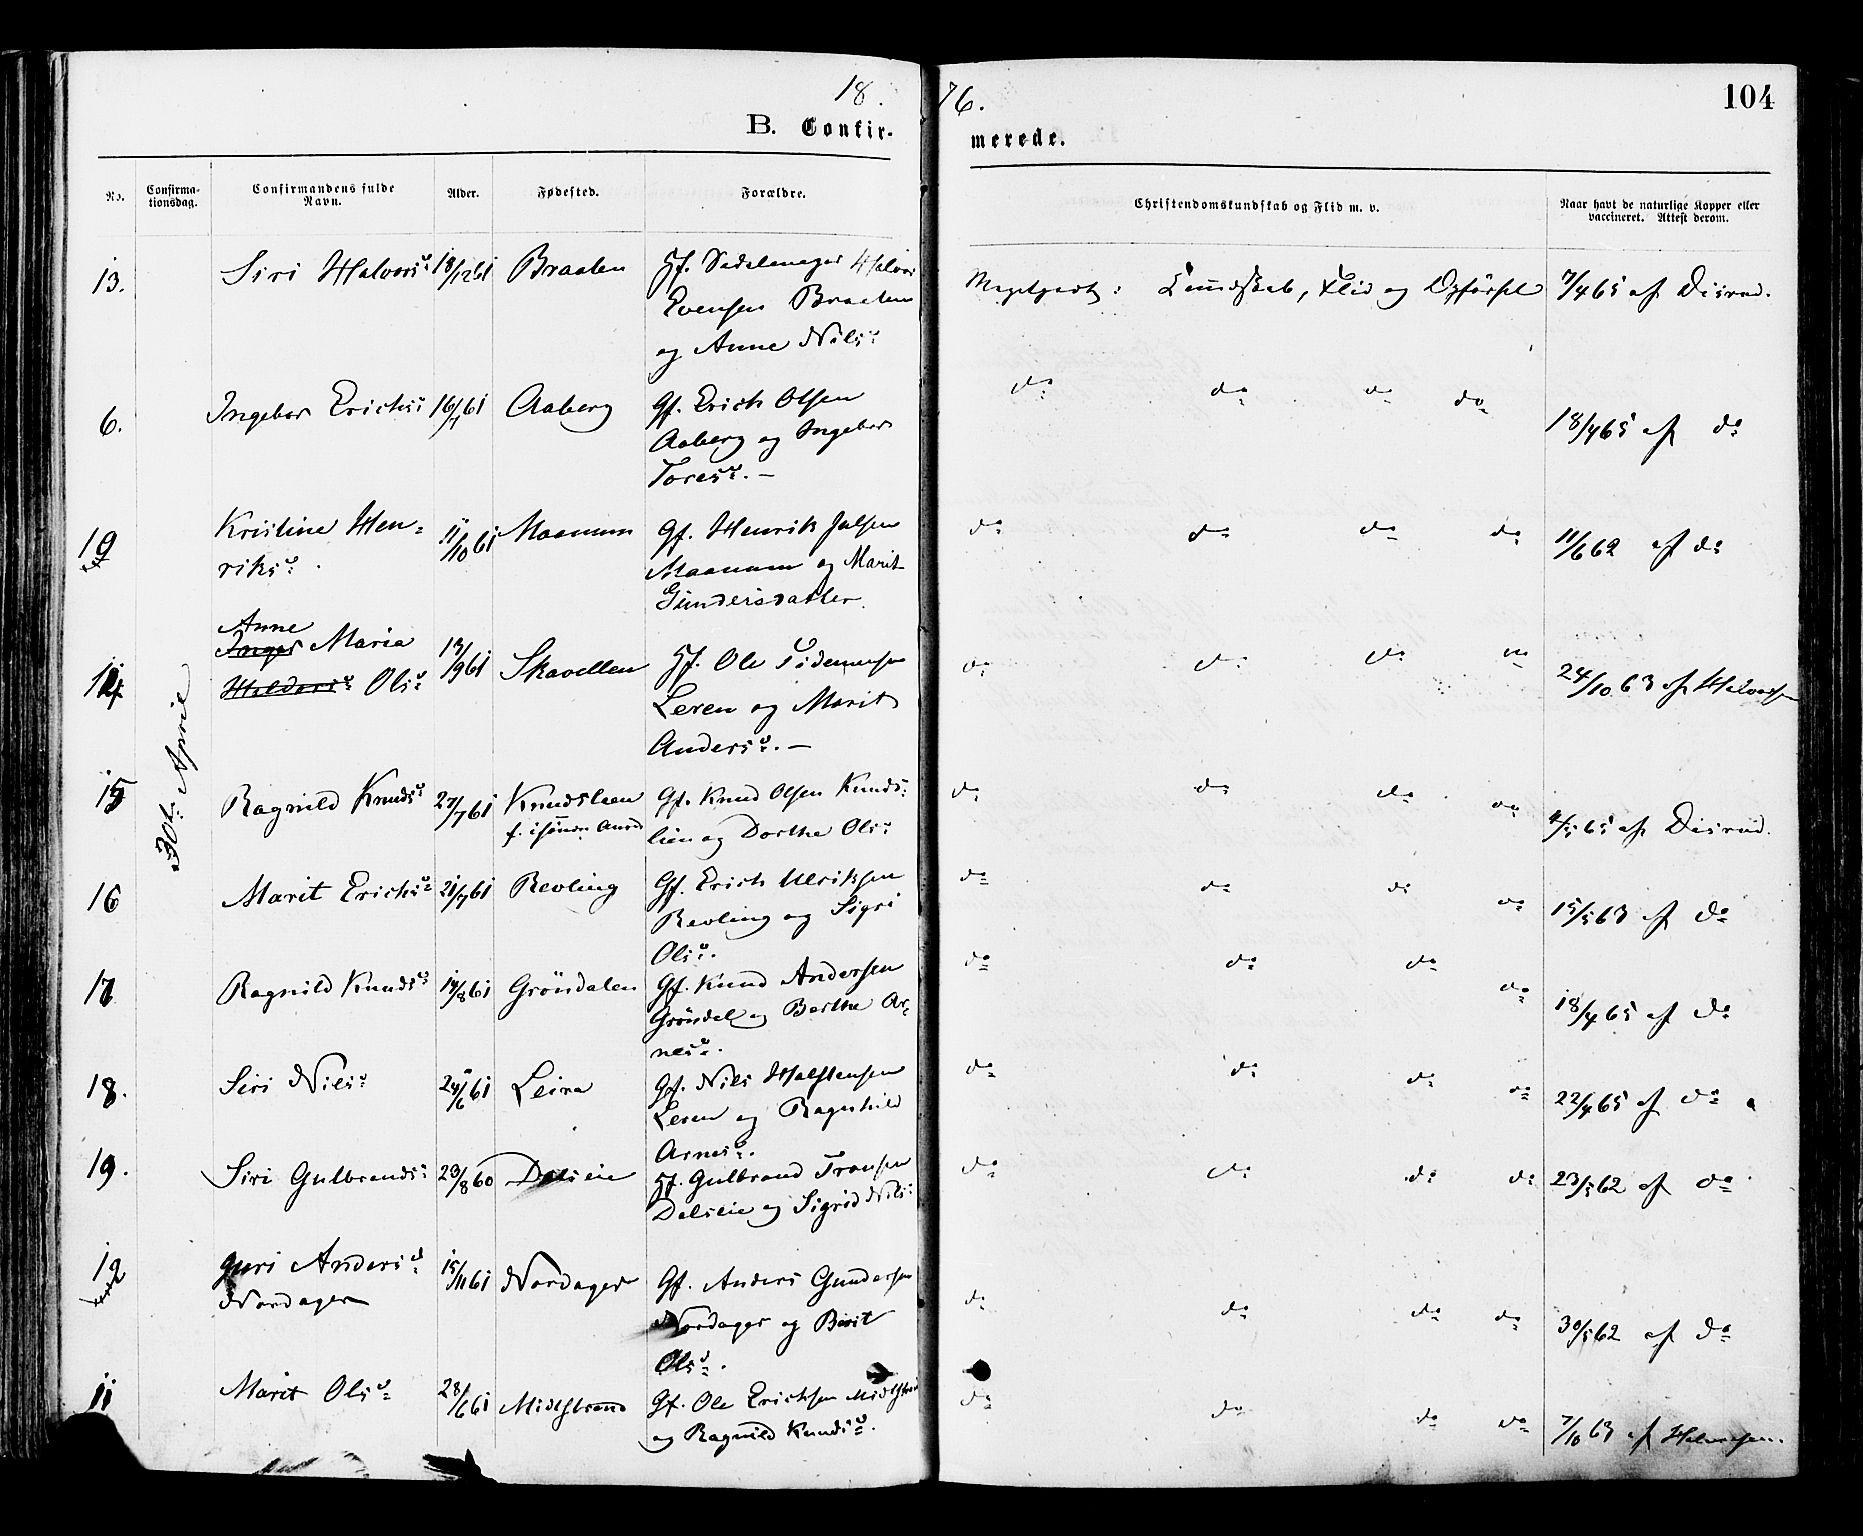 18
76.
104
B. Confir-
merede.
No.
Confirma-
tionsdag.
Confirmandens fulde
Navn.
Alder.
Fødested.
Forældre.
Christendomskundskab og Flid m. v.
Naar havt de naturlige Kopper eller
vaccineret. Attest derom.
30te April
13. Siri Halvorsd: 18/12 61 Braaten Gf. Halvor
Evensen Braaten
og Anne Nilsd:
Megetgodt: Kundskab, Flid og Opførsel 7/4 65 af Disrud.
6. Ingebor Erichsd: 16/7 61 Aaberg Gf. Erich Olsen
Aaberg og Ingebor
Toresd:. —
do do do do 18/4 65 af do
10 Kristine Hen- 11/10 61 Maanum Gf. Henrik Julsen
riksd: Maanum og Marit
Gundersdatter.
do do do do 11/6 62 af do
Anne
Inger Maria 13/9 61 Skavellen Gf. Ole
14 Olsd: Leren og Marit
Andersd:. —
do do do do 24/10 63 af Halvorsen
15 Ragnild Knudsd: 27/7 61 Knudslien Gf. Knud Olsen Knuds-
lien og Dorthe Olsd:
do do do do 4/5 65 af Disrud.
16 Marit Erichsd: 21/7 61 Revling Gf. Erich Ulriksen
Revling og Sigri
Olsd:.
do do do do 15/5 63 af do
17 Ragnild Knudsd: 14/8 61 Gröndalen Gf. Knud Andersen
Gröndal og Berthe Ar-
nesd:.
do do do do 18/4 65 af do
18. Siri Nilsd: 24/6 61 Leira Gf. Nils Halstensen
Leren og Ragnhild
Arnesd:.
do do do do 22/4 65 af do
19. Siri Gulbrandsd: 23/8 60 Dalseie Gf. Gulbrand Tronsen
Dalseie og Sigrid Nilsd:
do do do do 23/5 62 af do
12 Guri Andersd: 15/11 61 Nordager Gf. Anders Gundersen
Nordager Nordager og Berit
Olsd:.
do do do do 30/5 62 af do
11 Marit Olsd: 28/6 61 Midtstrand Gf. Ole Ericksen
og Ragnild Knudsd:.
do do do do 7/10 63 af Halvorsen.